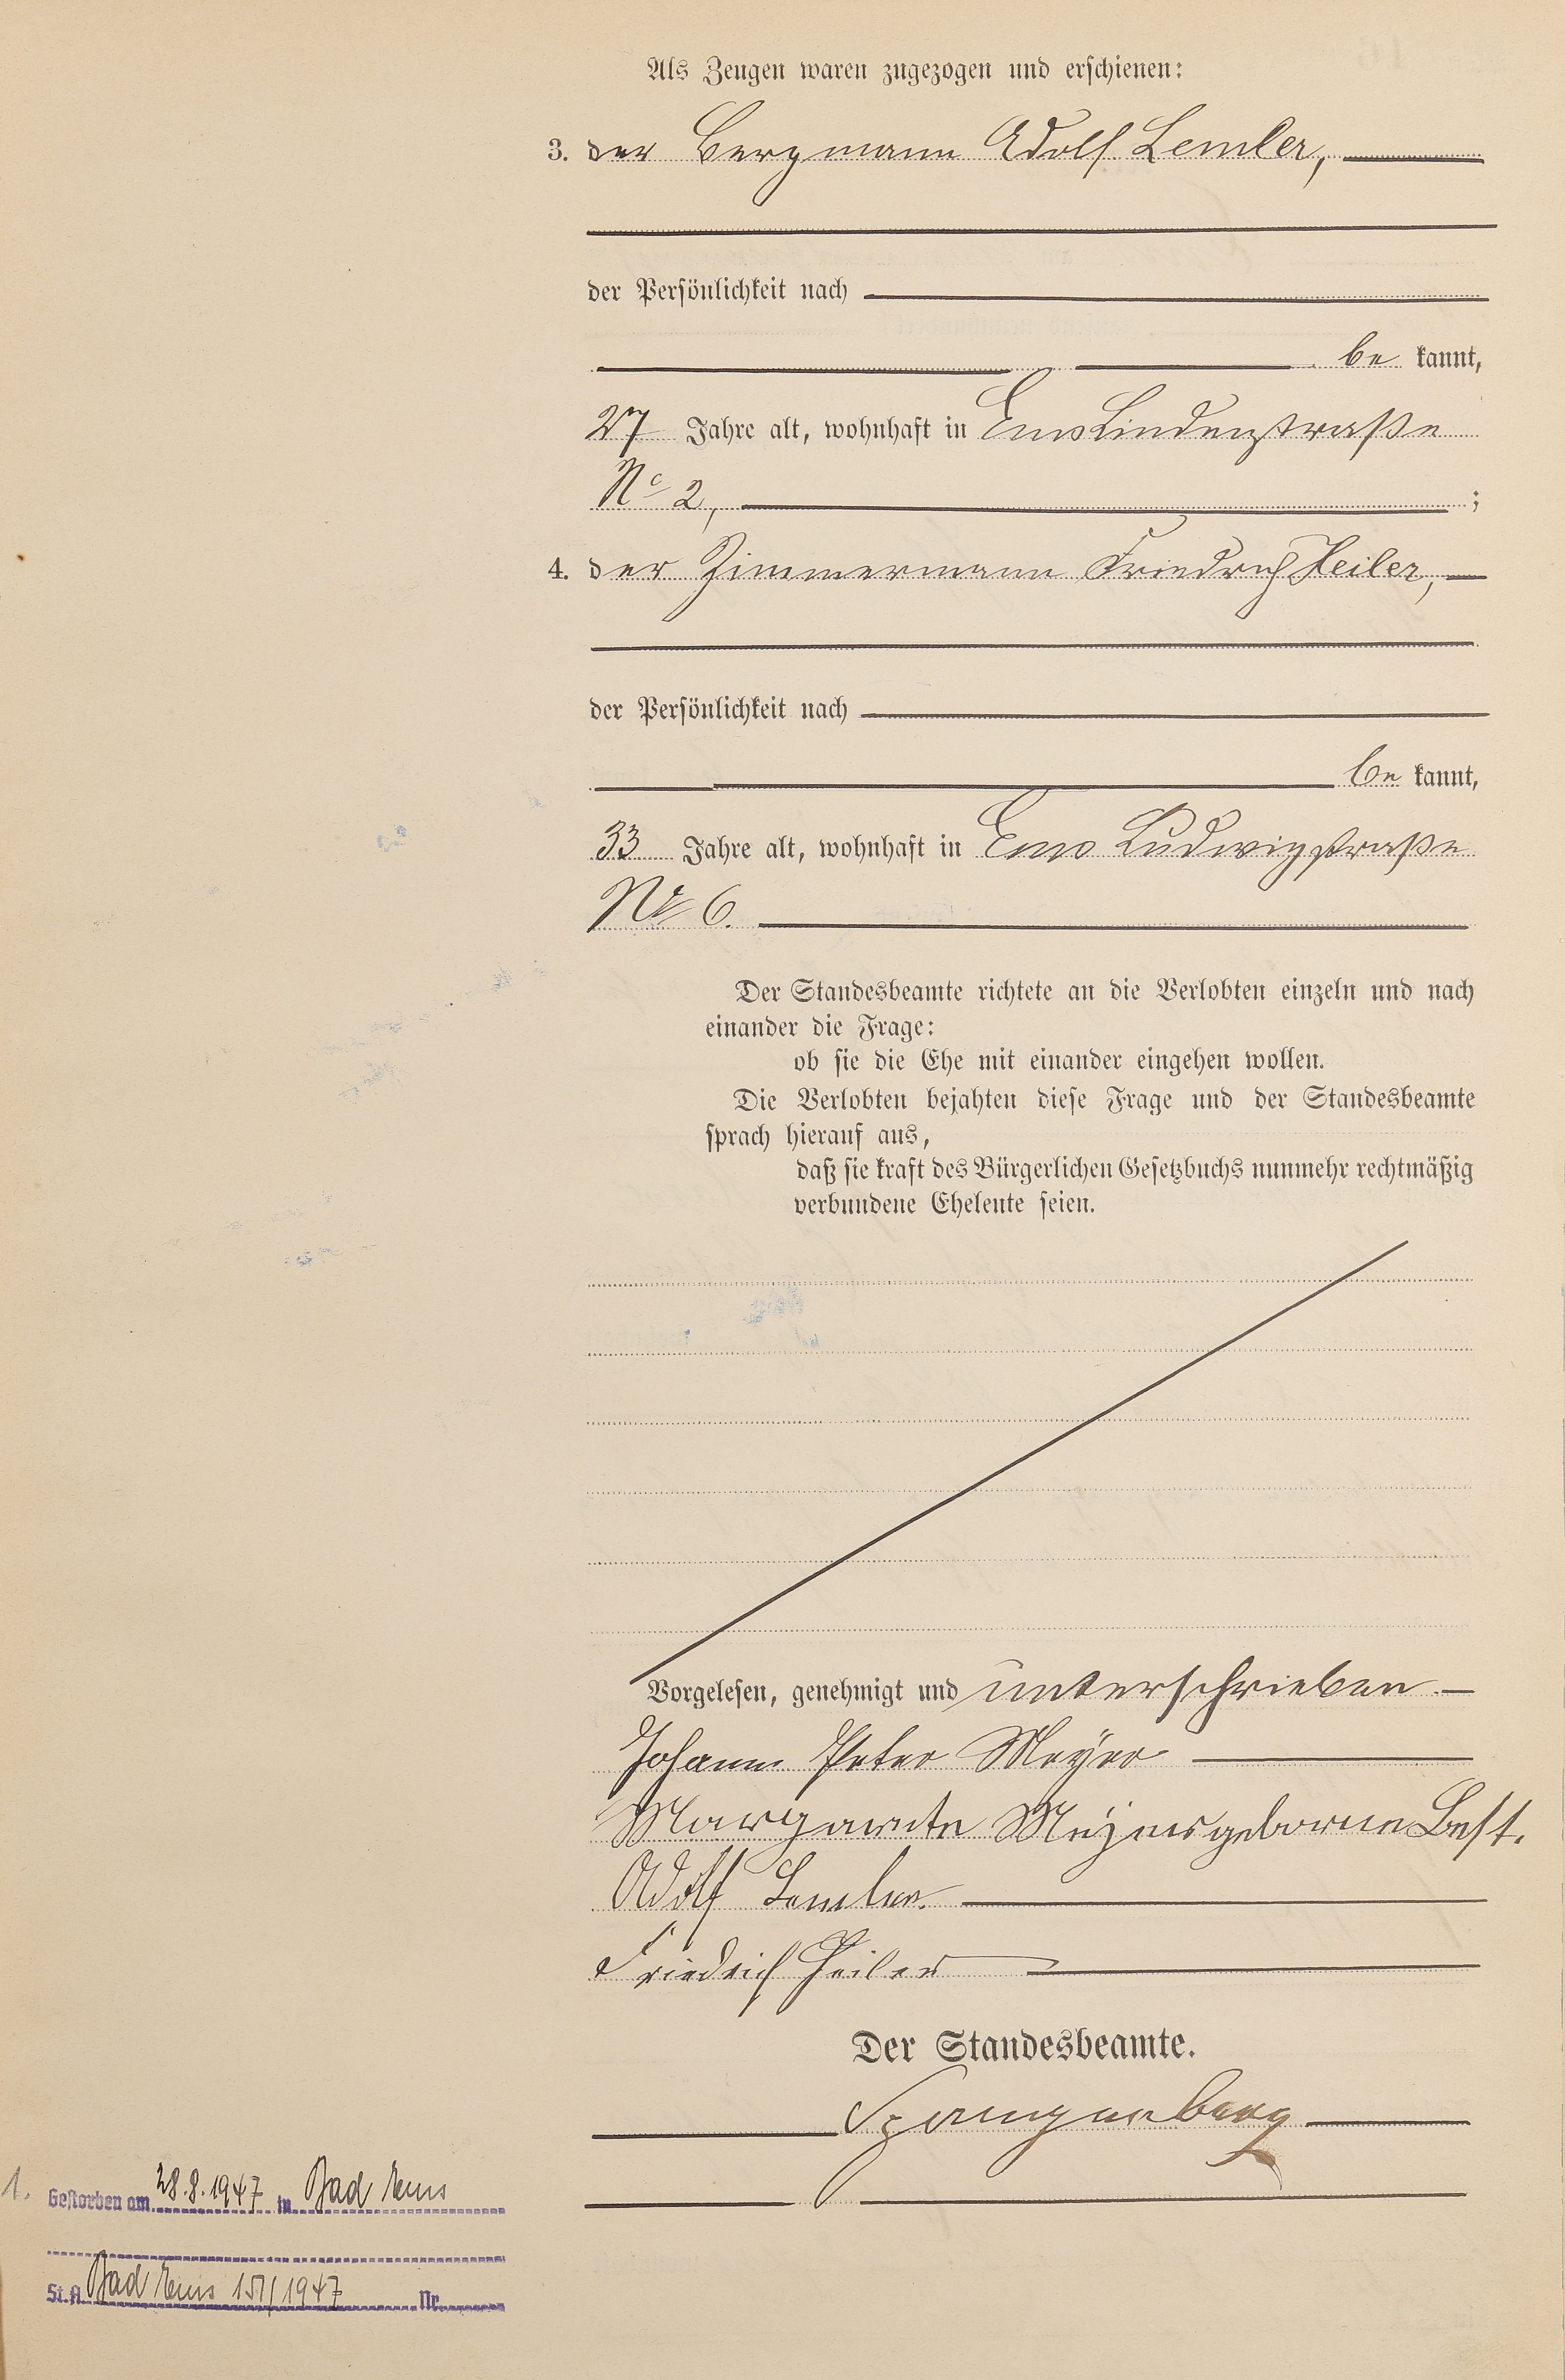 Als Zeugen waren zugezogen und erschienen:
3. der Bergmann Adolf Lemler,
der Persönlichkeit nach
be kannt,
27 Jahre alt, wohnhaft in Ems Lindenstraße
No 2, ;
4. der Zimmermann Friedrich Heiler,
der Persönlichkeit nach
be kannt,
33 Jahre alt, wohnhaft in Ems Ludwigstraße
Nr 6.
Der Standesbeamte richtete an die Verlobten einzeln und nach
einander die Frage:
ob sie die Ehe mit einander eingehen wollen.
Die Verlobten bejahten diese Frage und der Standesbeamte
sprach hierauf aus,
daß sie kraft des Bürgerlichen Gesetzbuchs nunmehr rechtmäßig
verbundene Eheleute seien.
Vorgelesen, genehmigt und unterschrieben
Johann Peter Meyer
Margarete geborne Best.
Adolf Lemler.
Friedrich Heiler
Der Standesbeamte.
Spangenberg
1. Gestorben am 28.8.1947 in Bad Ems
St.A. Bad Ems /1947 Nr.